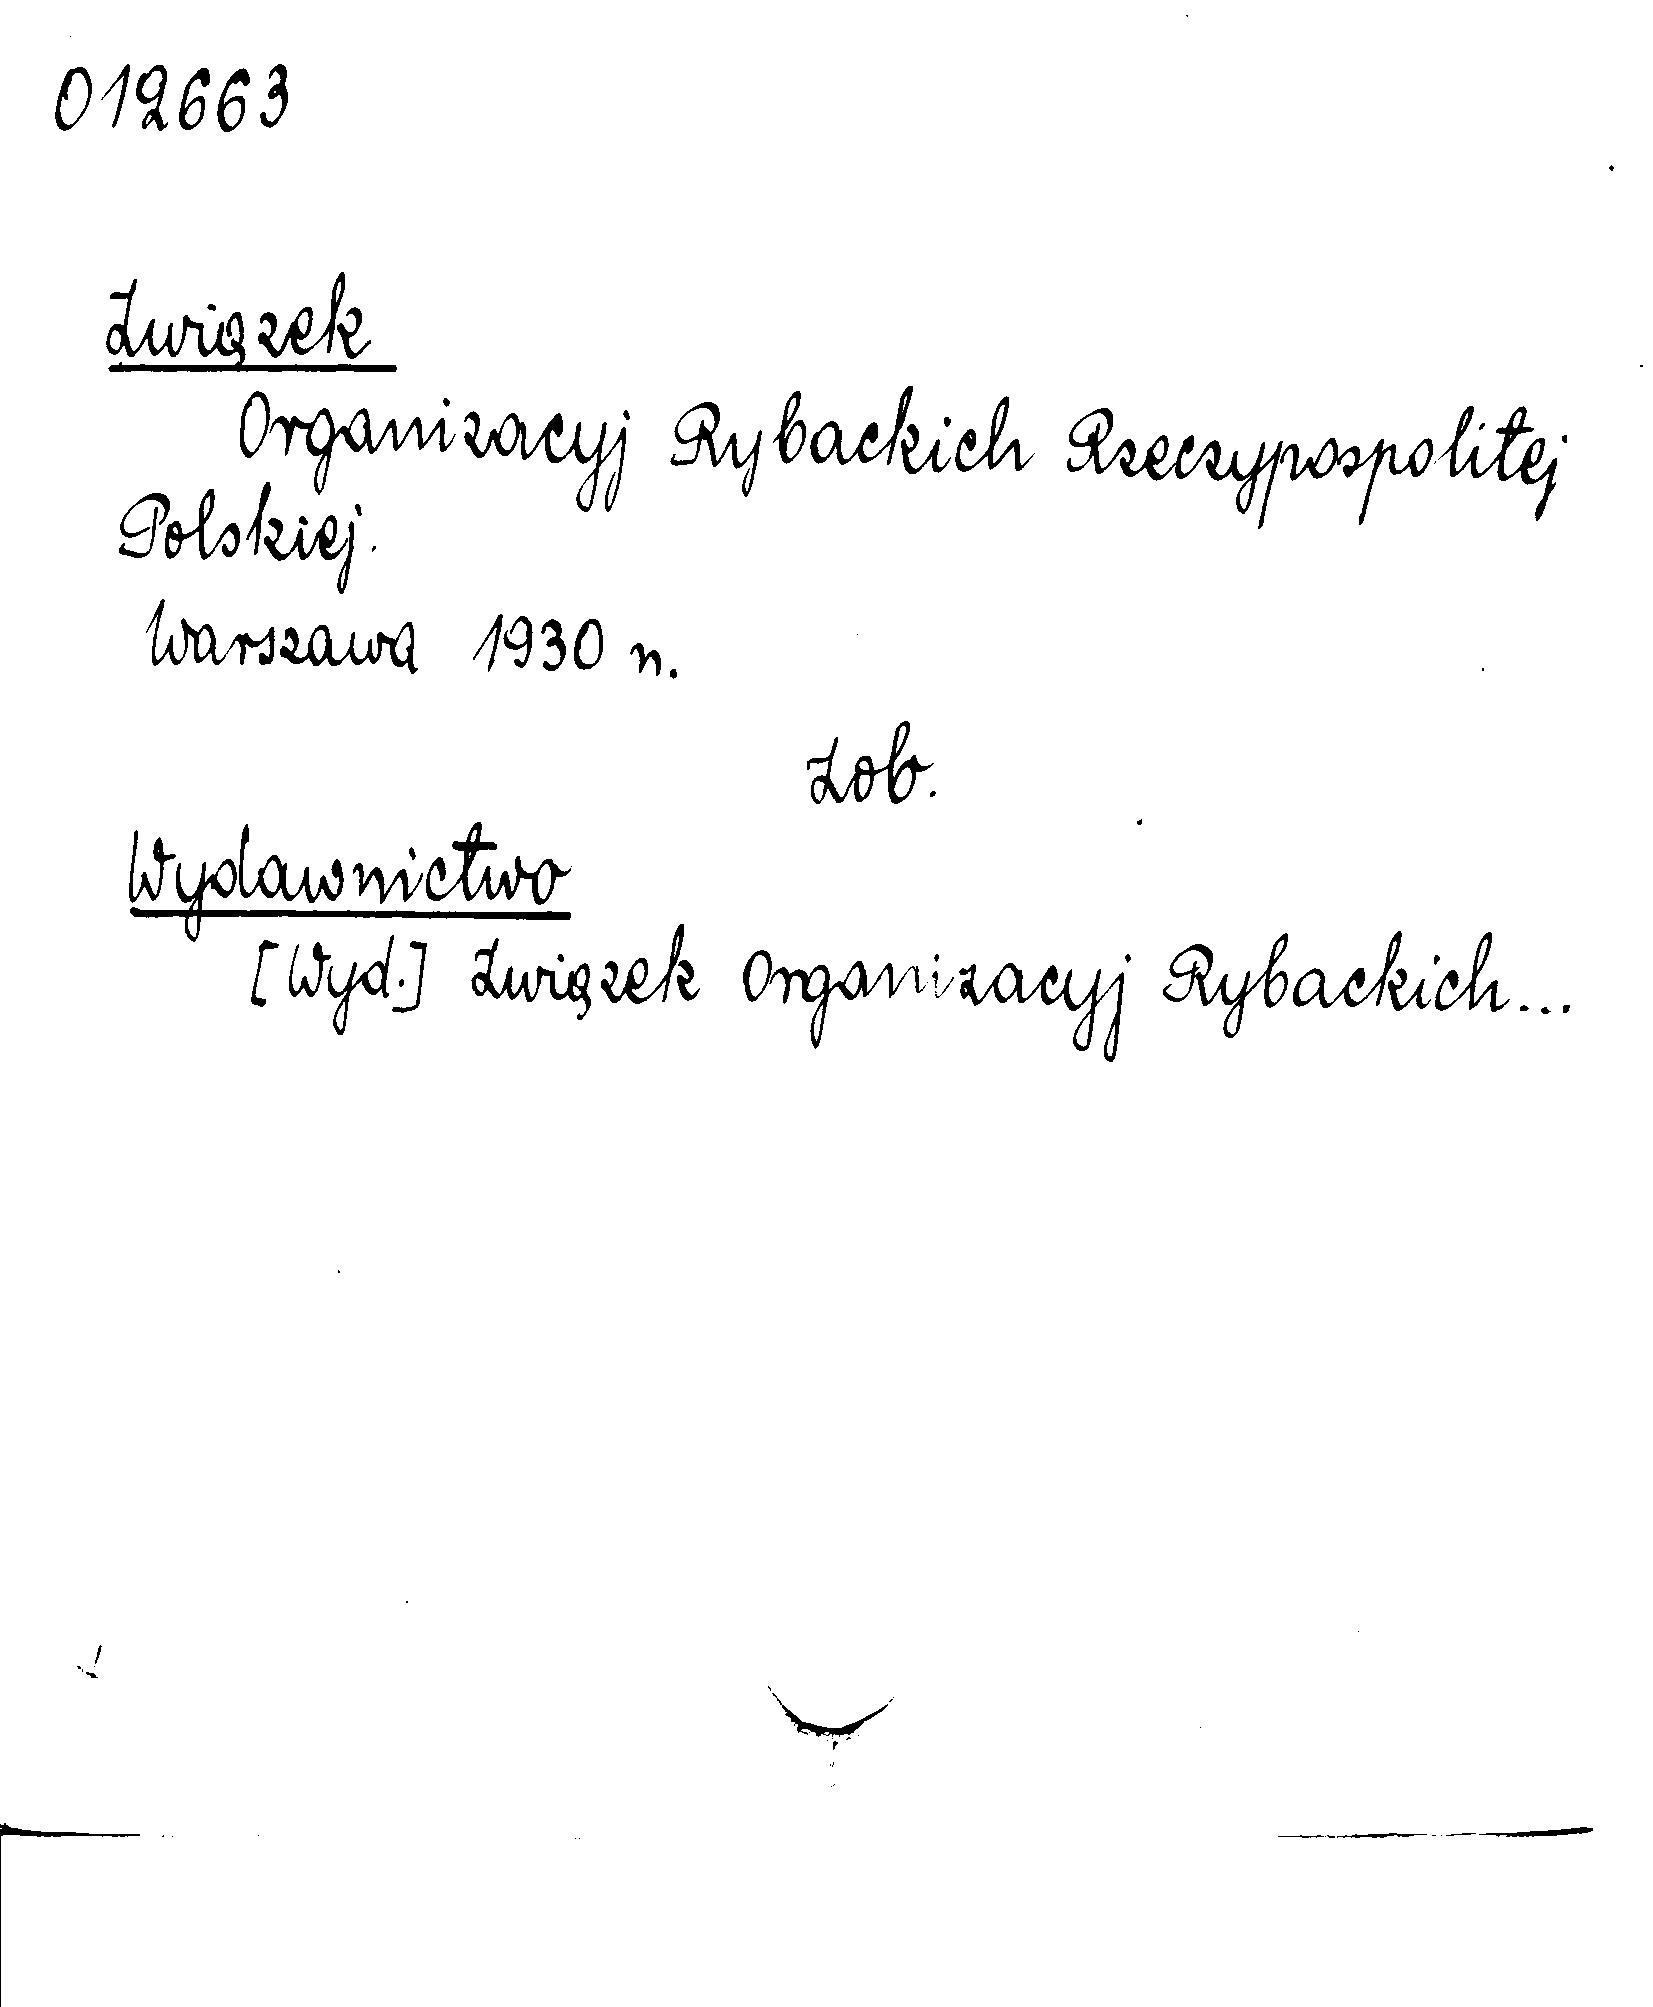 012663
Związek
Organizacyj Rybackich Rzeczypospolitej
Polskiej.
Warszawa 1930 n.
Zob.
Wydawnictwo
[Wyd.] Związek Organizacyj Rybackich...